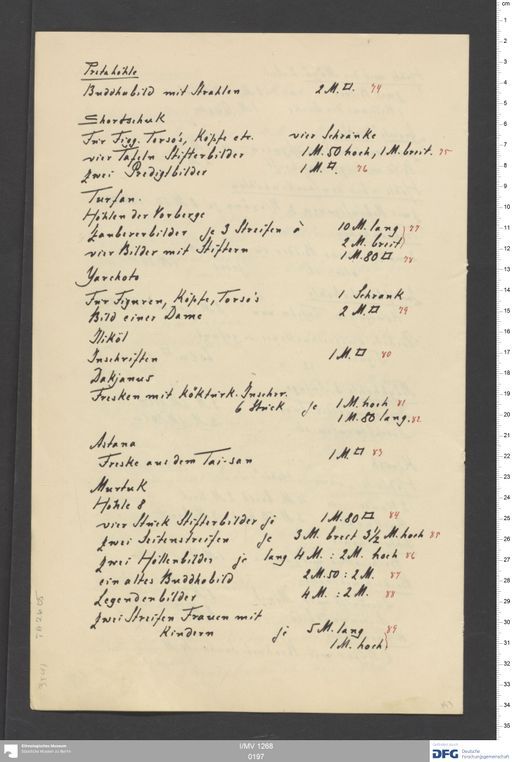 Pretahöhle
Buddhabild mit Strahlen 2 M. □. 74
Shortschuk
Für Figg. Torso's, Köpfe etc. vier Schränke
vier Tafeln Stifterbilder 1 M. 50 hoch, 1 M. breit. 75
zwei Predigtbilder 1 M. □. 76
Turfan.
Höhlen der Vorberge
Zaubererbilder je 3 Streifen à 10 M. lang 77
2 M. breit
vier Bilder mit Stiftern 1 M. 80 □ 78
Yarchoto
Für Figuren, Köpfe, Torso's 1 Schrank
Bild einer Dame 2 M. □ 79
Iliköl
Inschriften 1 M. □ 80
Dakjanus
Fresken mit köktürk. Inschrr.
6 Stück je 1 M. hoch 81
1 M. 80 lang. 82
Astana
Freske aus dem Tai-san 1 M. □ 83
Murtuk
Höhle 8
vier Stück Stifterbilder je 1 M. 80 □ 84
zwei Seitenstreifen je 3 M. breit 3½ M. hoch 85
zwei Höllenbilder je lang 4 M. : 2 M. hoch 86
ein altes Buddhabild 2 M. 50 : 2 M. 87
Legendenbilder 4 M. : 2 M. 88
zwei Streifen Frauen mit
Kindern je 5 M. lang 89
1 M. hoch
Ethnologisches Museum
Staatliche Museen zu Berlin
I/MV 1268
0197
Gefördert durch
DFG Deutsche
Forschungsgemeinschaft